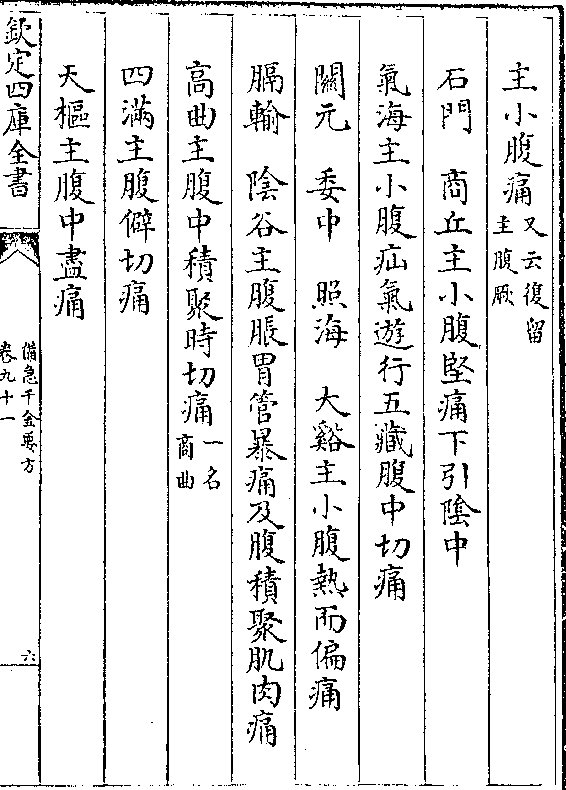 主小腹痛又云復留主腹厥
石門　商丘主小腹堅痛下引陰中
氣海主小腹疝氣遊行五藏腹中切痛
關元　委中　照海　大谿主小腹熱而偏痛
膈輸　陰谷主腹脹胃管暴痛及腹積聚肌肉痛
高曲主腹中積聚時切痛一名商曲
四滿主腹僻切痛
天樞主腹中盡痛
欽定四庫全書
備急千金要方
卷九十一
六